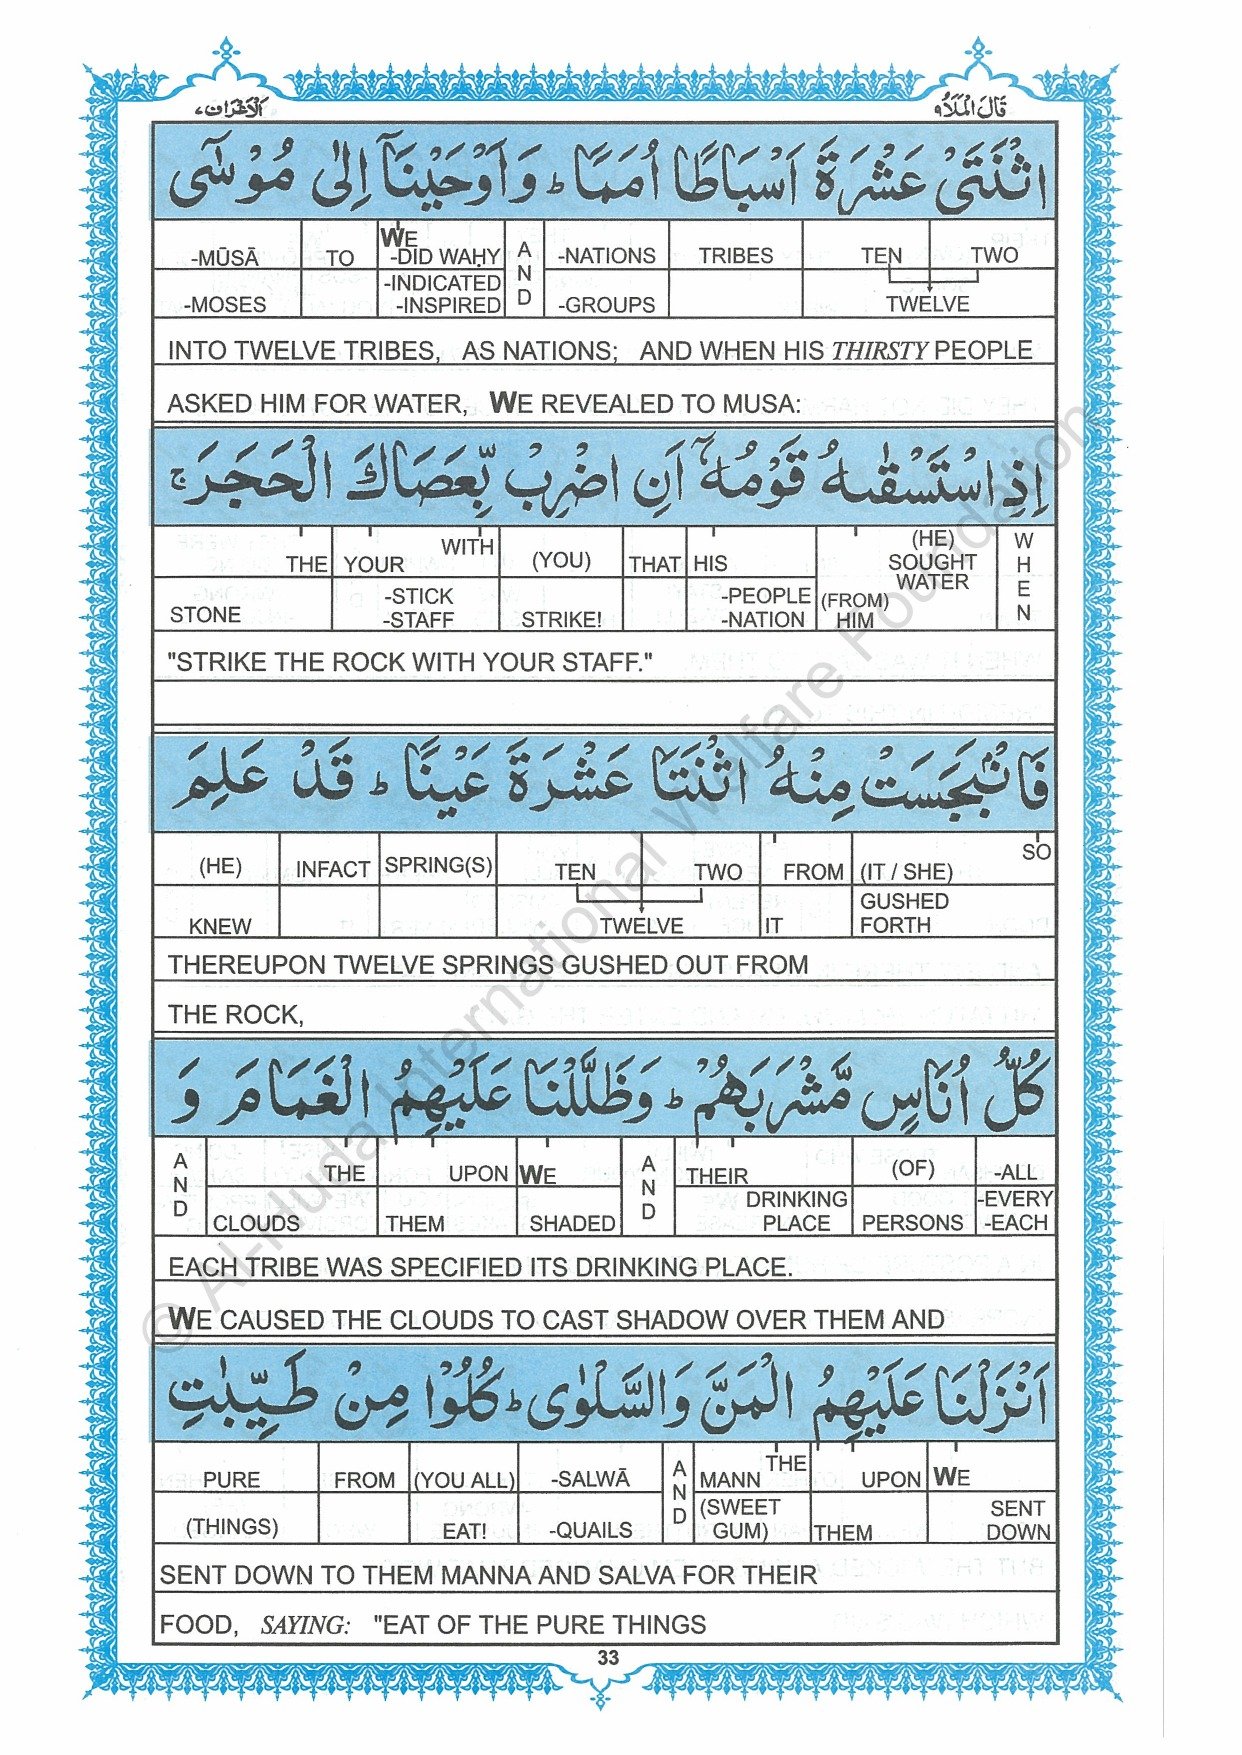 قَالَ الْمَلَاُ ٩
الْاَعْرَاف ٧
اثْنَتَیْ عَشْرَةَ اَسْبَاطًا اُمَمًا ؕ وَ اَوْحَیْنَاۤ اِلٰی مُوْسٰۤی
-MŪSĀ TO WE -DID WAḤY AND -NATIONS TRIBES TEN TWO
-MOSES -INDICATED -INSPIRED -GROUPS TWELVE
INTO TWELVE TRIBES, AS NATIONS; AND WHEN HIS THIRSTY PEOPLE
ASKED HIM FOR WATER, WE REVEALED TO MUSA:
اِذِ اسْتَسْقٰىهُ قَوْمُهٗۤ اَنِ اضْرِبْ بِّعَصَاكَ الْحَجَرَ ۚ
THE YOUR WITH (YOU) THAT HIS (HE) SOUGHT WATER WHEN
STONE -STICK -STAFF STRIKE! -PEOPLE -NATION (FROM) HIM
"STRIKE THE ROCK WITH YOUR STAFF."
فَانْۢبَجَسَتْ مِنْهُ اثْنَتَا عَشْرَةَ عَیْنًا ؕ قَدْ عَلِمَ
(HE) INFACT SPRING(S) TEN TWO FROM (IT / SHE) SO
KNEW TWELVE IT GUSHED FORTH
THEREUPON TWELVE SPRINGS GUSHED OUT FROM
THE ROCK,
كُلُّ اُنَاسٍ مَّشْرَبَهُمْ ؕ وَ ظَلَّلْنَا عَلَیْهِمُ الْغَمَامَ وَ
AND THE UPON WE AND THEIR (OF) -ALL
CLOUDS THEM SHADED DRINKING PLACE PERSONS -EVERY -EACH
EACH TRIBE WAS SPECIFIED ITS DRINKING PLACE.
WE CAUSED THE CLOUDS TO CAST SHADOW OVER THEM AND
اَنْزَلْنَا عَلَیْهِمُ الْمَنَّ وَ السَّلْوٰی ؕ كُلُوْا مِنْ طَیِّبٰتِ
PURE FROM (YOU ALL) -SALWĀ AND MANN THE UPON WE
(THINGS) EAT! -QUAILS (SWEET GUM) THEM SENT DOWN
SENT DOWN TO THEM MANNA AND SALVA FOR THEIR
FOOD, SAYING: "EAT OF THE PURE THINGS
33
© Al-Huda International Welfare Foundation